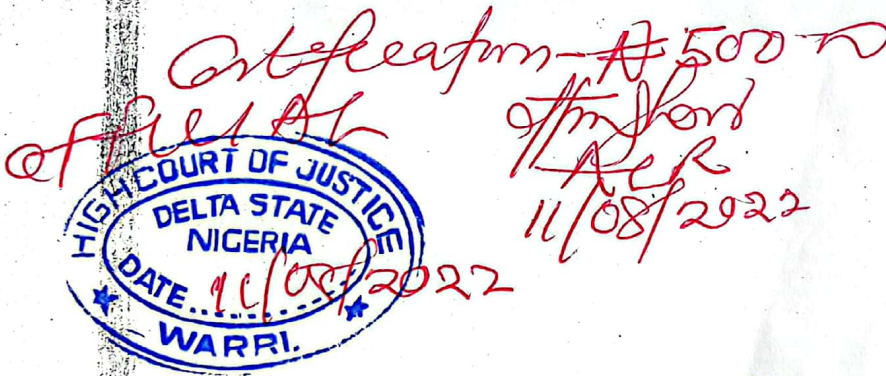 Certification - ₦500
OFFICIAL
ACR
11/08/2022
HIGH COURT OF JUSTICE
DELTA STATE
NIGERIA
DATE.. 11/08/2022
WARRI.